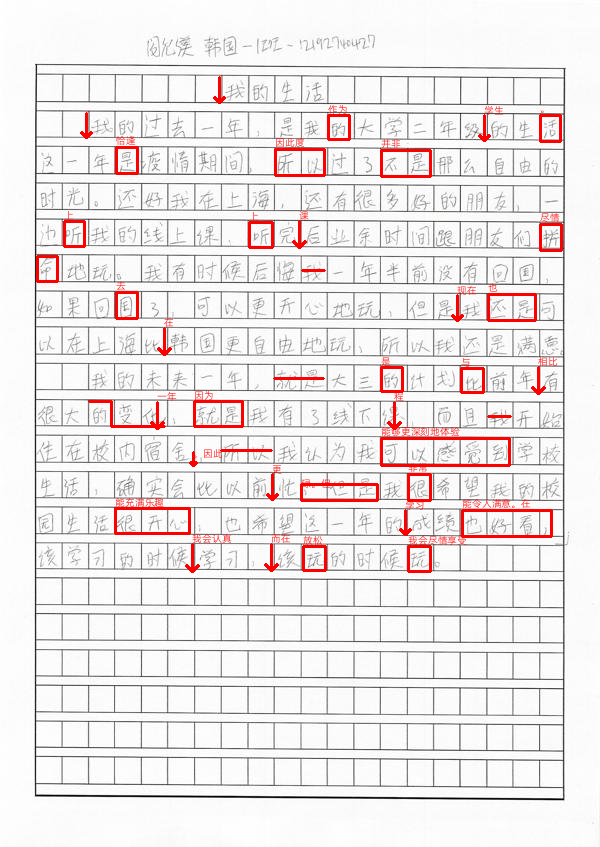 闵允瀅 韩国一班-2192740427
我的生活
作为 学生 。
我的过去一年，是我的大学二年级的生活
恰逢 因此度 并非
这一年是疫情期间，所以过了不是那么自由的
时光。还好我在上海，还有很多好的朋友，一
上 上 课 尽情
边听我的线上课，听完后业余时间跟朋友们拼
命地玩。我有时候后悔我一年半前没有回国，
去 现在 也
如果回国了，可以更开心地玩，但是我还是可
在
以在上海比韩国更自由地玩，所以我还是满意。
是 与 相比
我的未来一年，就是大三的计划比前年有
一年 因为 程
很大的变化，就是我有了线下课，而且我开始
，因此 能够更深刻地体验
住在校内宿舍，所以我认为我可以感觉到学校
更 但 非常
生活，确实会比以前忙，但是我很希望我的校
能充满乐趣 学习 能令人满意。在
园生活很开心，也希望这一年的成绩也好看，
我会认真 而在 放松 我会尽情享受
该学习的时候学习，该玩的时候玩。